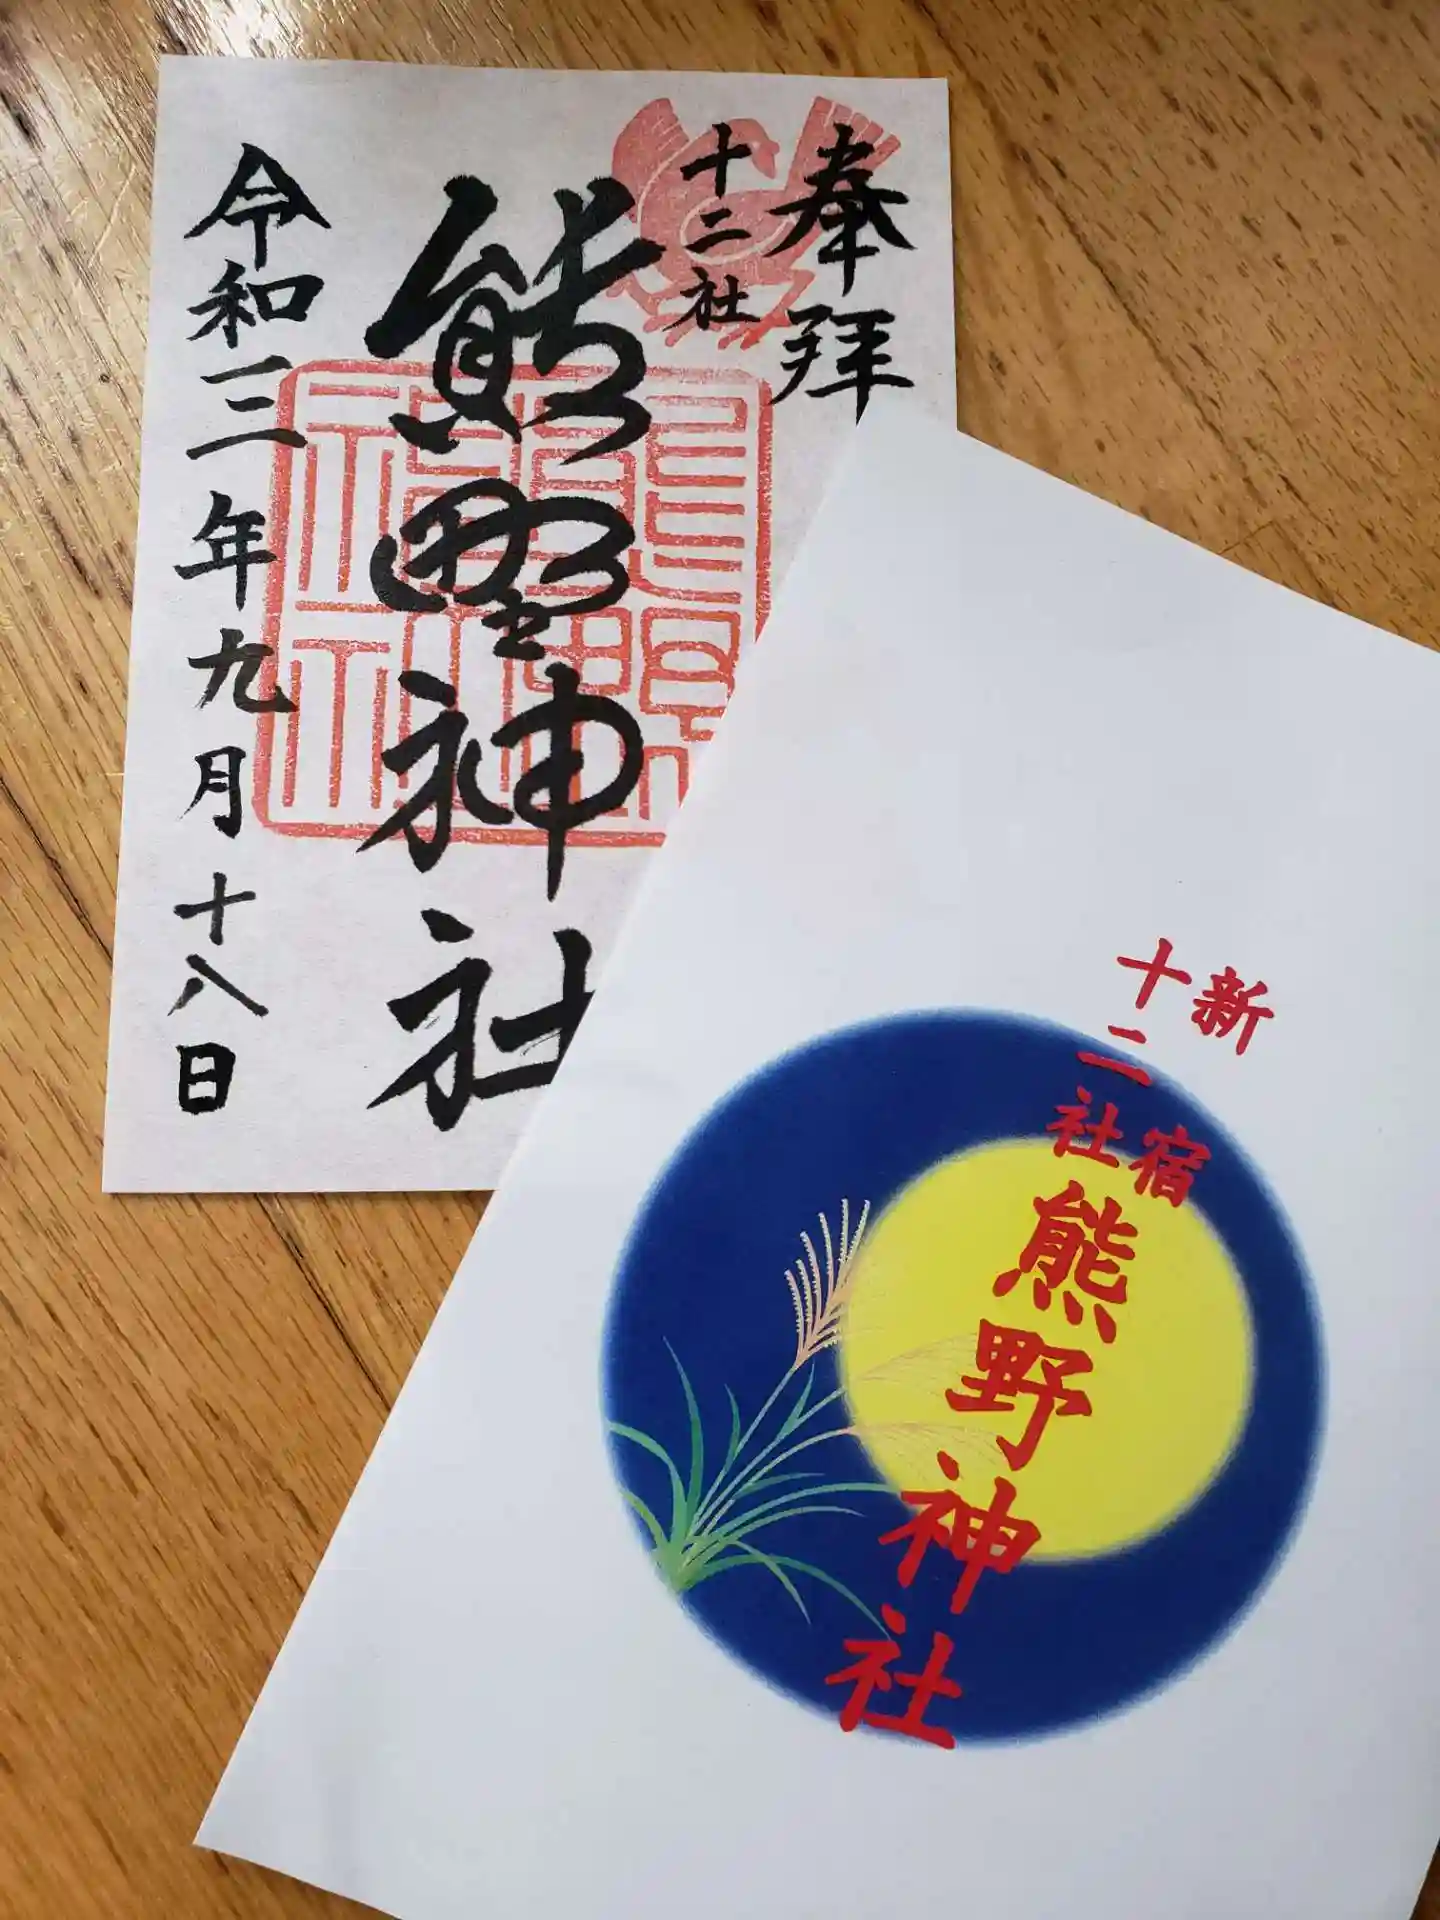 奉拝
十二社
熊野神社
令和三年九月十八日
新宿
十二社
熊野神社